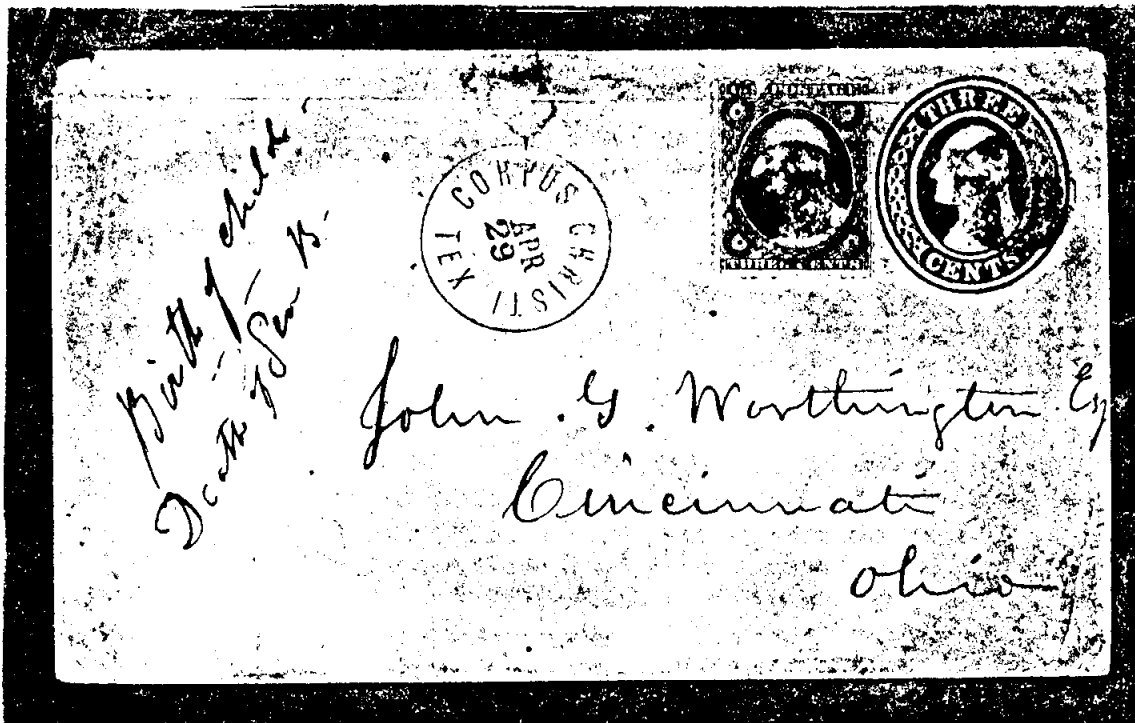 Birth of child.
Death of Gen B.
CORPUS CHRISTI
TEX
APR
29
U.S. POSTAGE
THREE CENTS
THREE
CENTS.
John . G. Worthington Esq
Cincinnati
Ohio